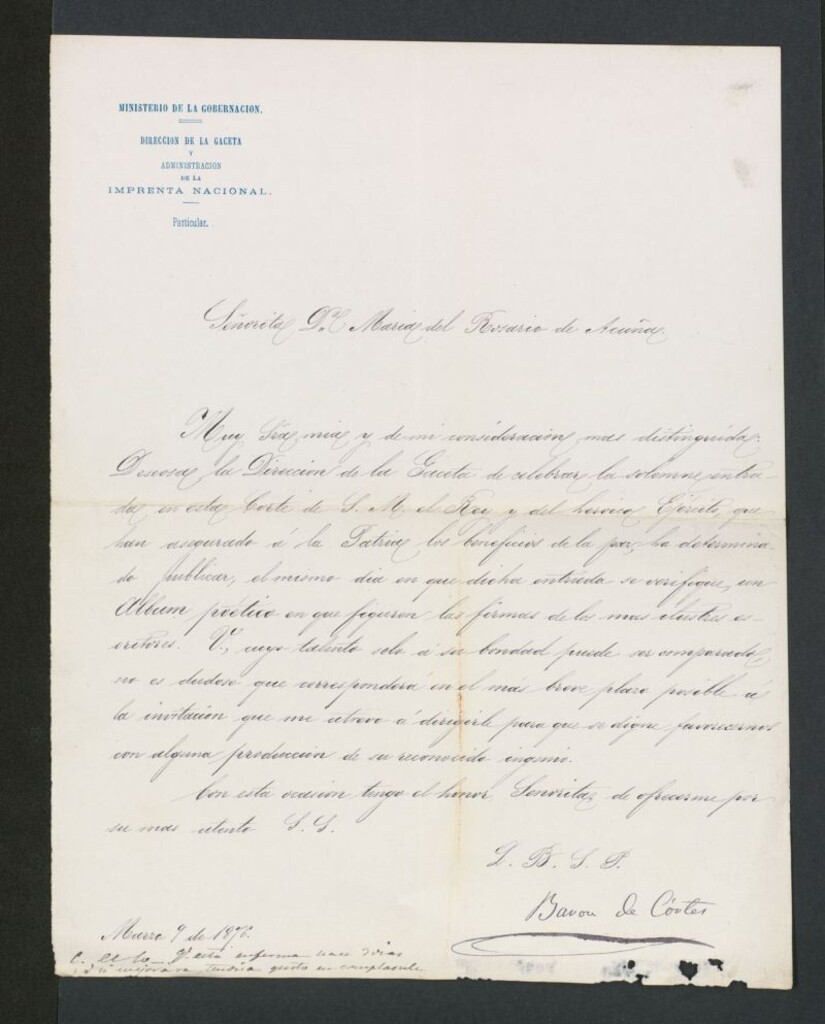 MINISTERIO DE LA GOBERNACION.
DIRECCION DE LA GACETA
Y
ADMINISTRACION
DE LA
IMPRENTA NACIONAL.
Particular.
Señorita Dª Maria del Rosario de Acuña.
Muy Sra mia y de mi consideracion mas distinguida:
Deseosa la Direccion de la Gaceta de celebrar la solemne entra-
da en esta Corte de S. M. el Rey y del heroico Ejército, que
han asegurado á la Patria los beneficios de la paz, ha determina-
do publicar, el mismo dia en que dicha entrada se verifique, un
Album poético en que figuren las firmas de los mas ilustres es-
critores. V., cuyo talento solo á su bondad puede ser comparado,
no es dudoso que corresponderá en el más breve plazo posible á
la invitacion que me atrevo á dirigirle para que se digne favorecernos
con alguna produccion de su reconocido ingenio.
Con esta ocasion tengo el honor, Señorita, de ofrecerme por
su mas atento S. S.
Q. B. S. P.
Baron de Córtes
Marzo 9 de 1876.
C. el 10 Vª está enferma hace 3 dias
si mejorara tendria gusto en complacerle